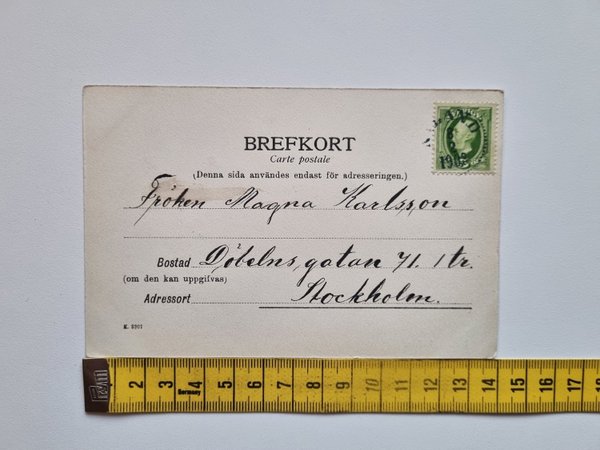 BREFKORT
Carte postale
(Denna sida användes endast för adresseringen.)
Fröken Magna Karlsson
Bostad Döbelns gatan 71. 1 tr.
(om den kan uppgifvas)
Adressort Stockholm.
2 3 4 Germany 5 6 7 8 9 10 11 12 13 14 15 16 17 18